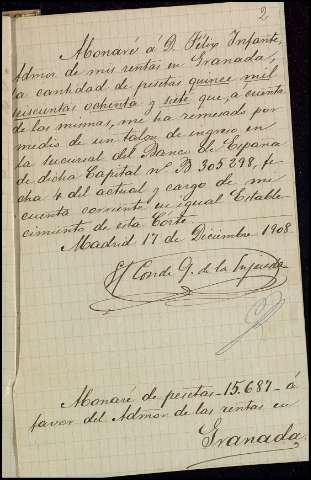 2
Monaré á D. Félix Infante,
Admor de mis rentas en Granada,
la cantidad de pesetas quince mil
seiscientas ochenta y siete que, a cuenta
de las mismas, me ha remesado por
medio de un talon de ingreso, en
la sucursal del Banco de España
de dicha Capital nº B 305298, fe-
cha 4 del actual y cargo de mi
cuenta corriente en igual Estable-
cimiento de esta Córte.
Madrid 17 de Diciembre 1908
El Conde G. de la
Monaré de pesetas - 15.687 - á
favor del Admor de las rentas en
Granada